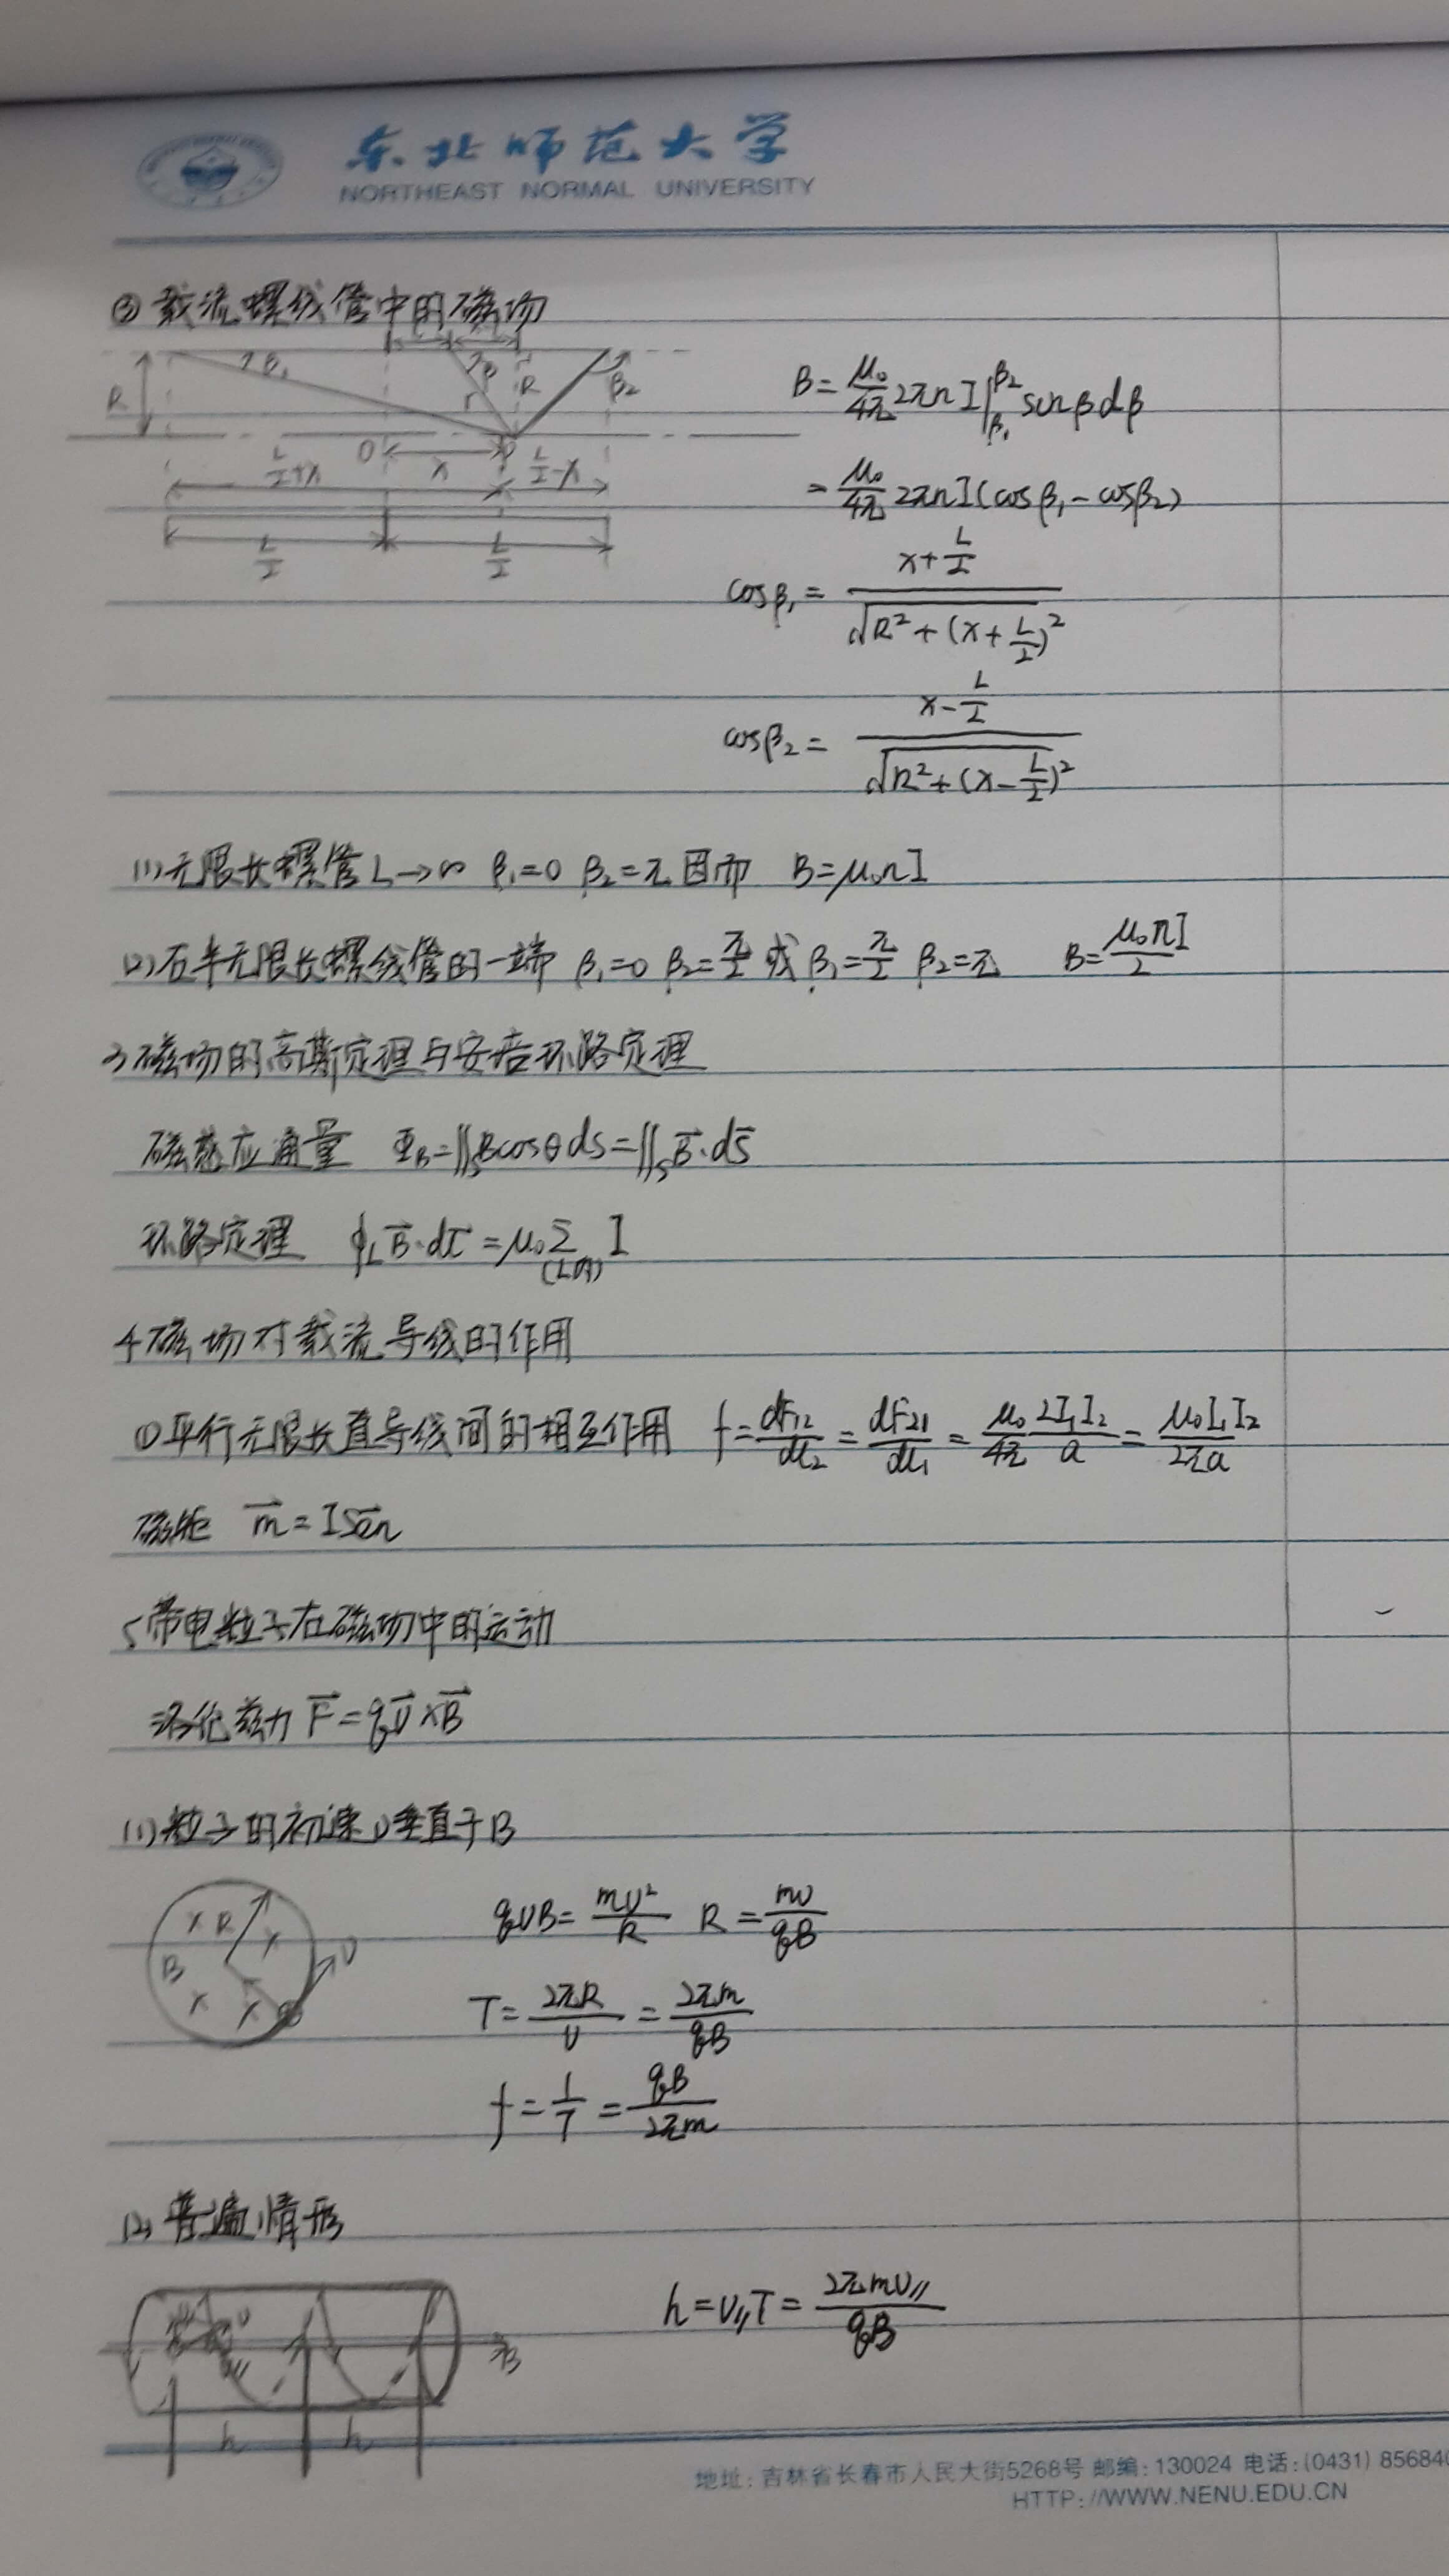 东北师范大学
NORTHEAST NORMAL UNIVERSITY
③载流螺线管中的磁场
R β₁ r β R β₂
O x P
L/2+x L/2-x
L/2 L/2
B=μ₀/4π 2πnI∫β₁^β₂ sinβdβ
=μ₀/4π 2πnI(cosβ₁-cosβ₂)
cosβ₁=(x+L/2)/√(R²+(x+L/2)²)
cosβ₂=(x-L/2)/√(R²+(x-L/2)²)
(1)无限长螺管L→∞ β₁=0 β₂=π 因而 B=μ₀nI
(2)在半无限长螺线管的一端 β₁=0 β₂=π/2 或 β₁=π/2 β₂=π B=μ₀nI/2
3磁场的高斯定理与安培环路定理
磁感应通量 Φ_B=∬_S Bcosθds=∬_S B⃗·ds⃗
环路定理 ∮_L B⃗·dl⃗=μ₀Σ(L内) I
4磁场对载流导线的作用
①平行无限长直导线间的相互作用 f=dF₁₂/dl₂=dF₂₁/dl₁=μ₀/4π 2I₁I₂/a=μ₀I₁I₂/2πa
磁矩 m⃗=ISe⃗n
5带电粒子在磁场中的运动
洛伦兹力F⃗=qv⃗×B⃗
(1)粒子的初速v垂直于B
R B v
qvB=mv²/R R=mv/qB
T=2πR/v=2πm/qB
f=1/T=qB/2πm
(2)普遍情形
h=v∥T=2πmv∥/qB
B
h h
地址:吉林省长春市人民大街5268号 邮编:130024 电话:(0431) 85684
HTTP://WWW.NENU.EDU.CN